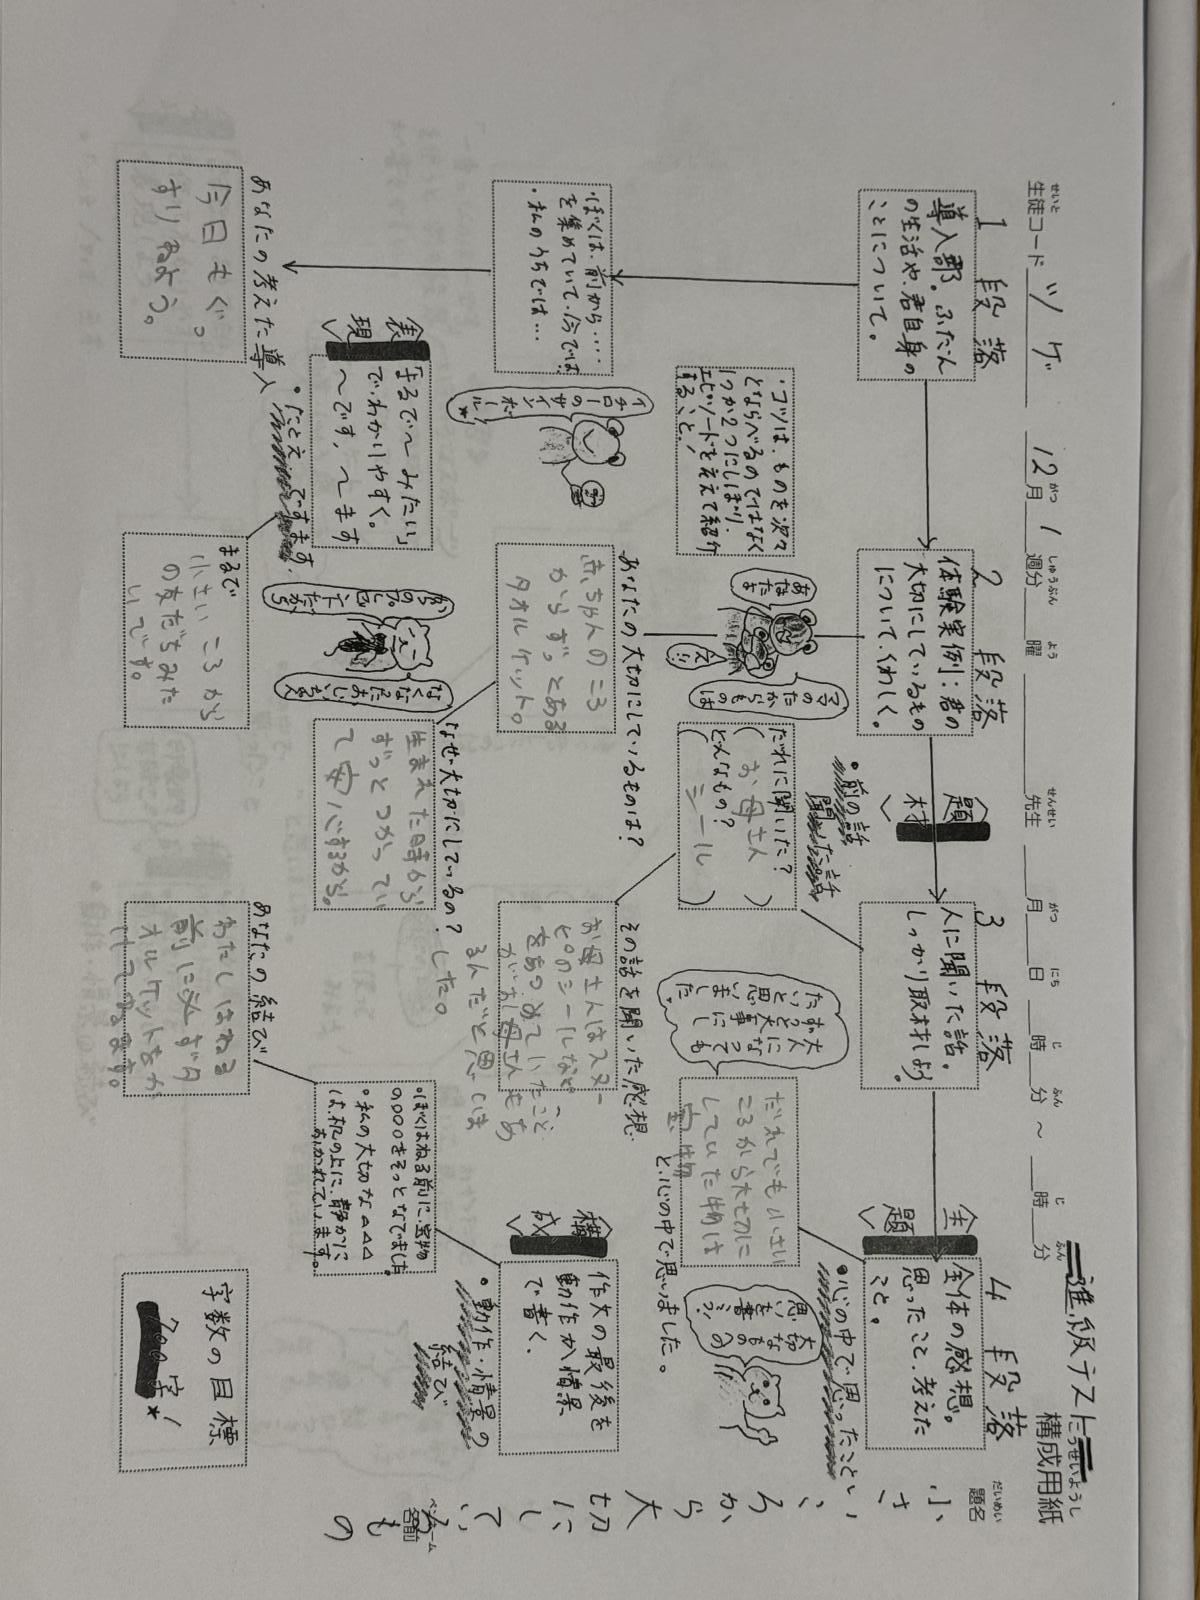 進級テスト
構成用紙
こうせいようし
生徒コード ツゲ 12月 1週分 曜 先生 月 日 時 分 ～ 時 分
題名
小さいころから大切にしているもの
ペンネーム
名前
1段落
導入部。ふだん
の生活や、君自身の
ことについて。
2段落
体験実例：君の
大切にしているもの
について、くわしく。
題材
3段落
人に聞いた話。
しっかり取材しよう。
主題
4段落
全体の感想。
思ったこと、考えた
こと。
・コツは、ものを次々
とならべるのではなく
1つか2つにしぼり、
エピソードを交えて紹介
すること！
・ぼくは、前から……
を集めていて、今では…
・私のうちでは…
イチローのサインボール★
あなたの考えた導入
今日もぐっ
すりねよう。
表現
「まるで～みたい」
で、わかりやすく。
～です、～ます
・たとえ
まるで
小さいころから
の友だちみた
いです。
ママのたからものは
あなたよ
え!!
あなたの大切にしているものは？
赤ちゃんのころ
からずっとある
タオルケット。
なくなったおじいちゃん
なぜ大切にしているの？
生まれた時から
ずっとつかってい
て安心するから。
・前の話
聞いた話
だれに聞いた？
（お母さん）
どんなもの？
（シール）
その話を聞いた感想
お母さんはスヌー
ピーのシールなど
をあつめていたこと
がいお母さんもあ
るんだと思いま
した。
大人になってもずっと大事にしたいと思いました。
だれでも小さい
ころから大切に
していた物は
宝物
と、心の中で思いました。
・心の中で思ったこと
大切なものへの思いを書こう！
構成
作文の最後を
動作か情景
で書く。
・動作・情景の
結び
・ぼくはねる前に、宝物
の○○○をそっとなでました。
・私の大切な△△△
は、机の上に、静かに
おかれています。
あなたの結び
わたしはねる
前に必ずタ
オルケットをか
けてねます。
字数の目標
700字！★